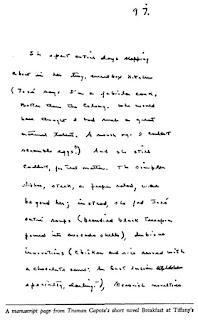 97.
She spent entire days slopping
about in her tiny, sweatbox kitchen
(José says I'm a fabulous cook.
Better than the Colony. Who would
have thought I had such a great
natural talent. A month ago I couldn't
scramble eggs.") And she still
couldn't, for that matter. The simpler
dishes, steak, a proper salad, were
beyond her; instead, she fed José
outré soups (brandied black terrapin
poured into avocado shells), dubious
innovations (chicken and rice served with
a chocolate sauce: "An East Indian
specialty, darling."), Neronish novelties
A manuscript page from Truman Capote's short novel Breakfast at Tiffany's